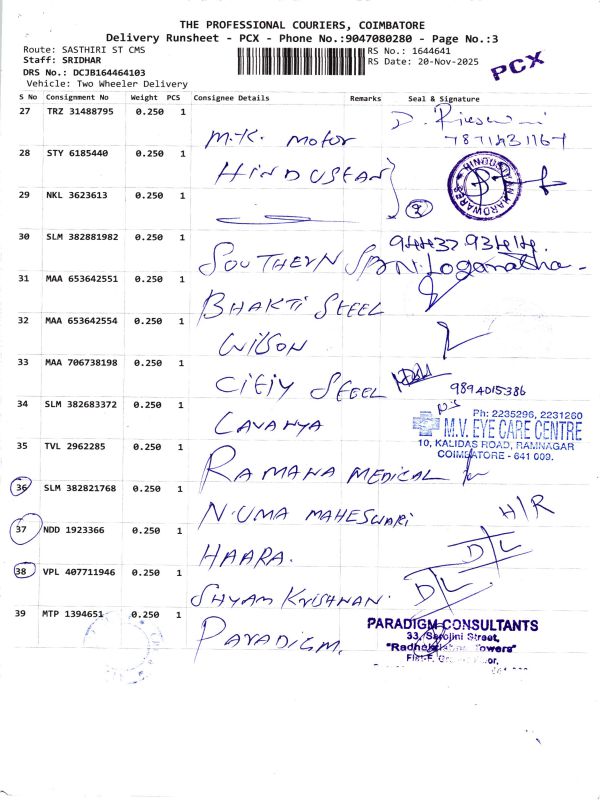 THE PROFESSIONAL COURIERS, COIMBATORE
Delivery Runsheet - PCX - Phone No.:9047080280 - Page No.:3
Route: SASTHIRI ST CMS
RS No.: 1644641
Staff: SRIDHAR
RS Date: 20-Nov-2025
PCX
DRS No.: DCJB164464103
Vehicle: Two Wheeler Delivery
S No Consignment No Weight PCS Consignee Details Remarks Seal & Signature
27 TRZ 31488795 0.250 1 M.K. Motor
28 STY 6185440 0.250 1 HINDUSTAN
HINDUSTAN HARDWARES
29 NKL 3623613 0.250 1 2
30 SLM 382881982 0.250 1 SOUTHERN
31 MAA 653642551 0.250 1 BHAKTI STEEL
32 MAA 653642554 0.250 1 WILSON
33 MAA 706738198 0.250 1 CITIY STEEL 9894015386
34 SLM 382683372 0.250 1 LAVANYA
Ph: 2235296, 2231260
M.V. EYE CARE CENTRE
10, KALIDAS ROAD, RAMNAGAR
COIMBATORE - 641 009.
35 TVL 2962285 0.250 1 RAMANA MEDICAL
36 SLM 382821768 0.250 1 N.UMA MAHESWARI H/R
37 NDD 1923366 0.250 1 HAARA. D/L
38 VPL 407711946 0.250 1 SHYAM KRISHNAN. D/L
39 MTP 1394651 0.250 1 PARADIGM.
PARADIGM CONSULTANTS
33, Sarojini Street,
Towers"